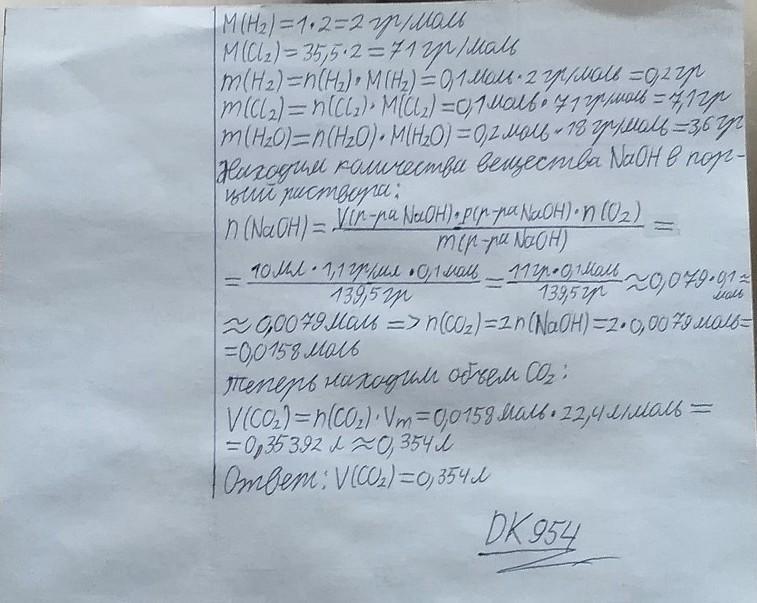 M(H₂)=1·2=2 гр/моль
M(Cl₂)=35,5·2=71 гр/моль
m(H₂)=n(H₂)·M(H₂)=0,1моль·2 гр/моль=0,2гр
m(Cl₂)=n(Cl₂)·M(Cl₂)=0,1моль·71гр/моль=7,1гр
m(H₂O)=n(H₂O)·M(H₂O)=0,2моль·18 гр/моль=3,6гр
Находим количества вещества NaOH в пор-
ций раствора:
n(NaOH)= V(р-ра NaOH)·ρ(р-ра NaOH)·n(O₂) / m(р-ра NaOH) =
= 10мл·1,1гр/мл·0,1моль / 139,5гр = 11гр·0,1моль / 139,5гр ≈0,079·0,1≈ моль
≈0,0079моль => n(CO₂)=2n(NaOH)=2·0,0079моль=
=0,0158моль
Теперь находим объем CO₂:
V(CO₂)=n(CO₂)·Vm=0,0158моль·22,4л/моль=
=0,35392л≈0,354л
Ответ: V(CO₂)=0,354л
DK954